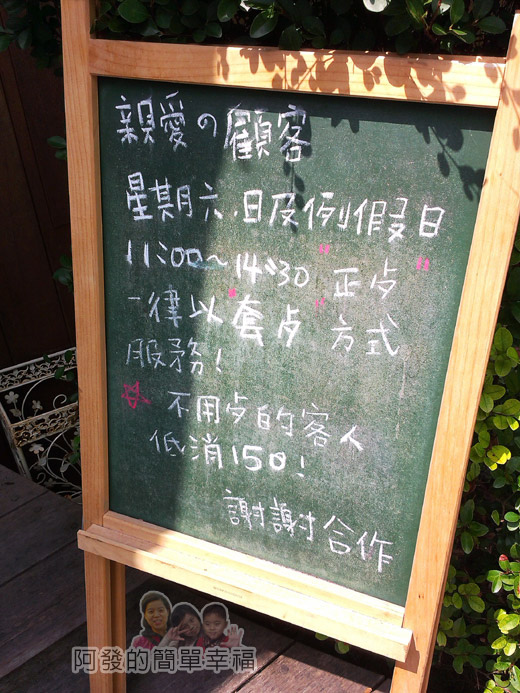 親愛の顧客
星期六.日及例假日
11:00~14:30 "正歺"
一律以"套歺"方式
服務!
☆ 不用歺的客人
低消150!
謝謝合作
阿發的簡單幸福